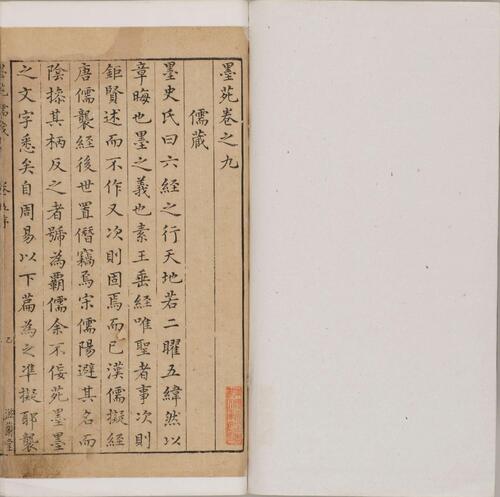 墨苑卷之九
儒藏
墨史氏曰六經之行天地若二曜五緯然以
章晦也墨之義也素王垂經唯聖者事次則
鉅賢述而不作又次則固焉而已漢儒擬經
唐儒襲經後世置僭竊焉宋儒陽避其名而
陰掾其柄反之者號為霸儒余不佞苑墨墨
之文字悉矣自周易以下篇為之準擬耶襲
墨苑儒藏
滋蘭堂